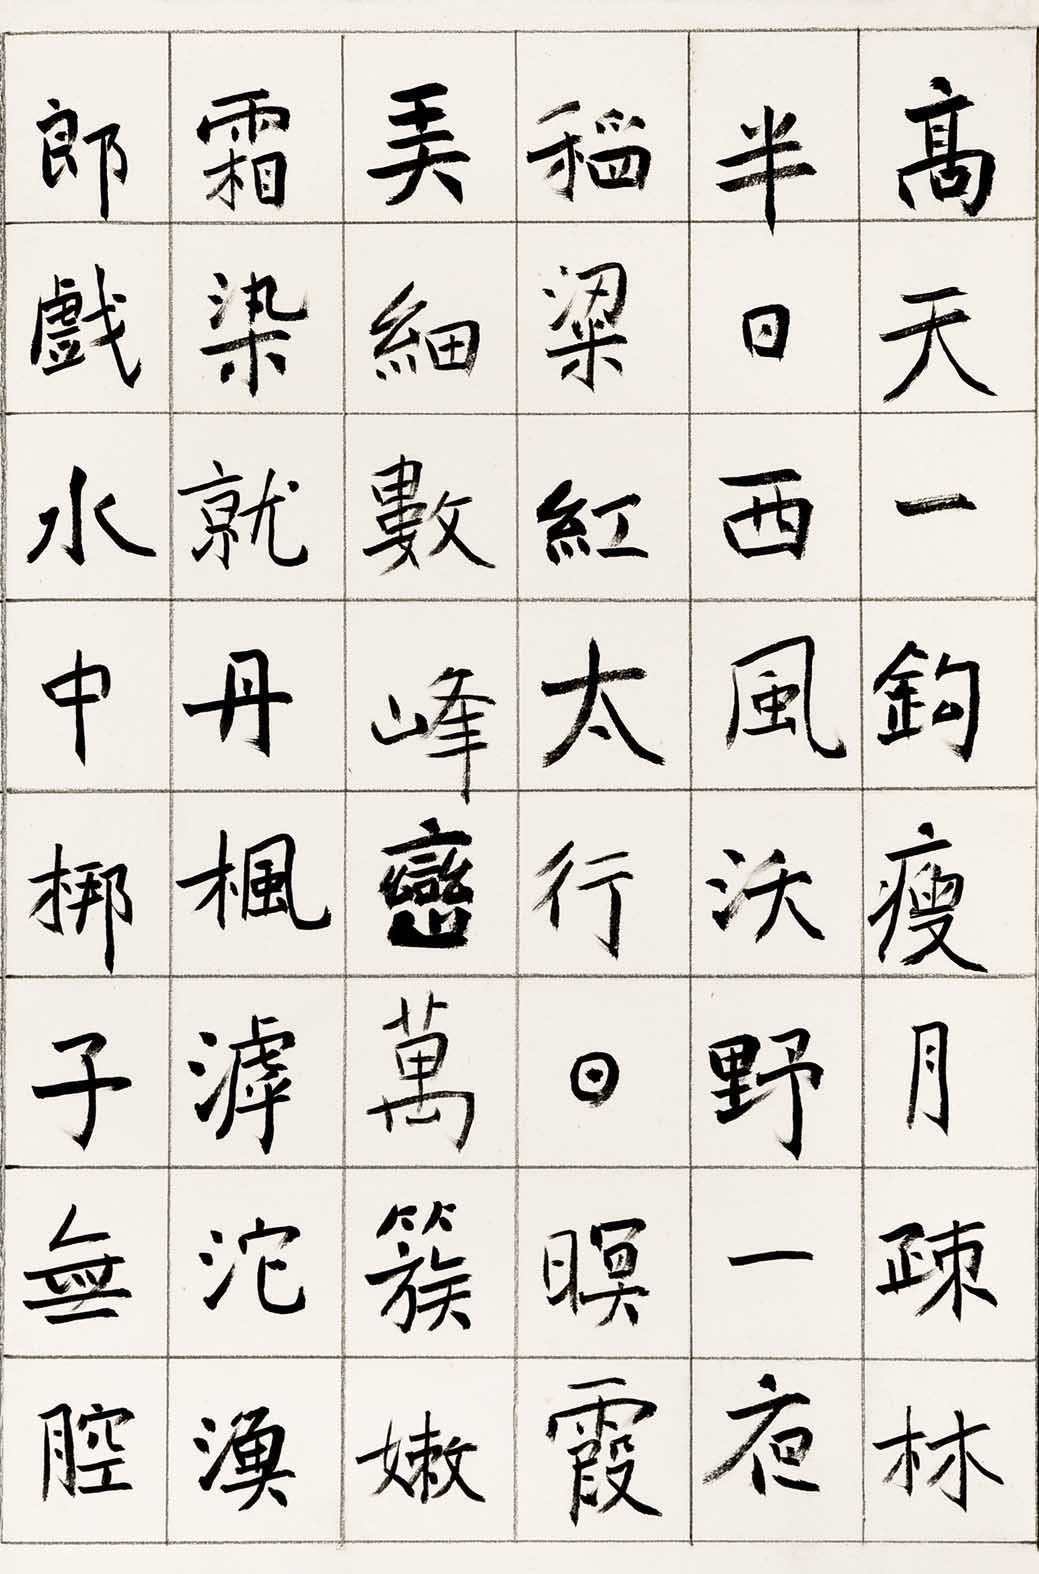 高天一鈎瘦月疎林
半日西風沃野一夜
稻粱紅太行日暝霞
美細數峰巒萬簇嫩
霜染就丹楓滹沱漁
郎戲水中梆子無腔